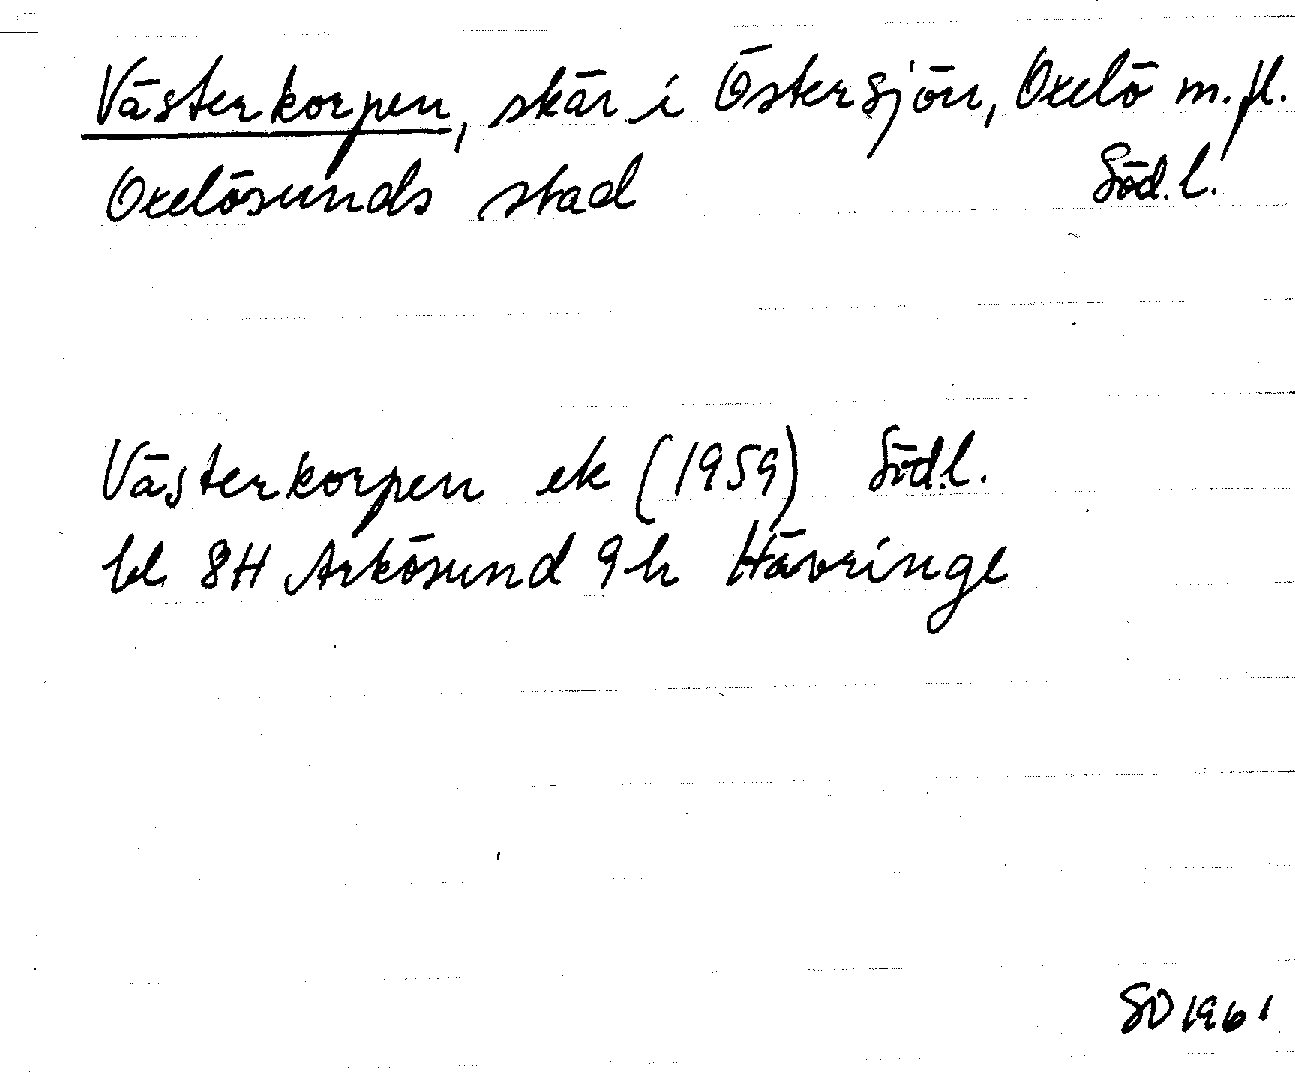 Västerkorpen, skär i Östersjön, Oxelö m.fl.
Oxelösunds stad Söd.l.
Västerkorpen ek (1959) Söd.l.
bl. 8H Arkösund 9h Hävringe
SD 1961